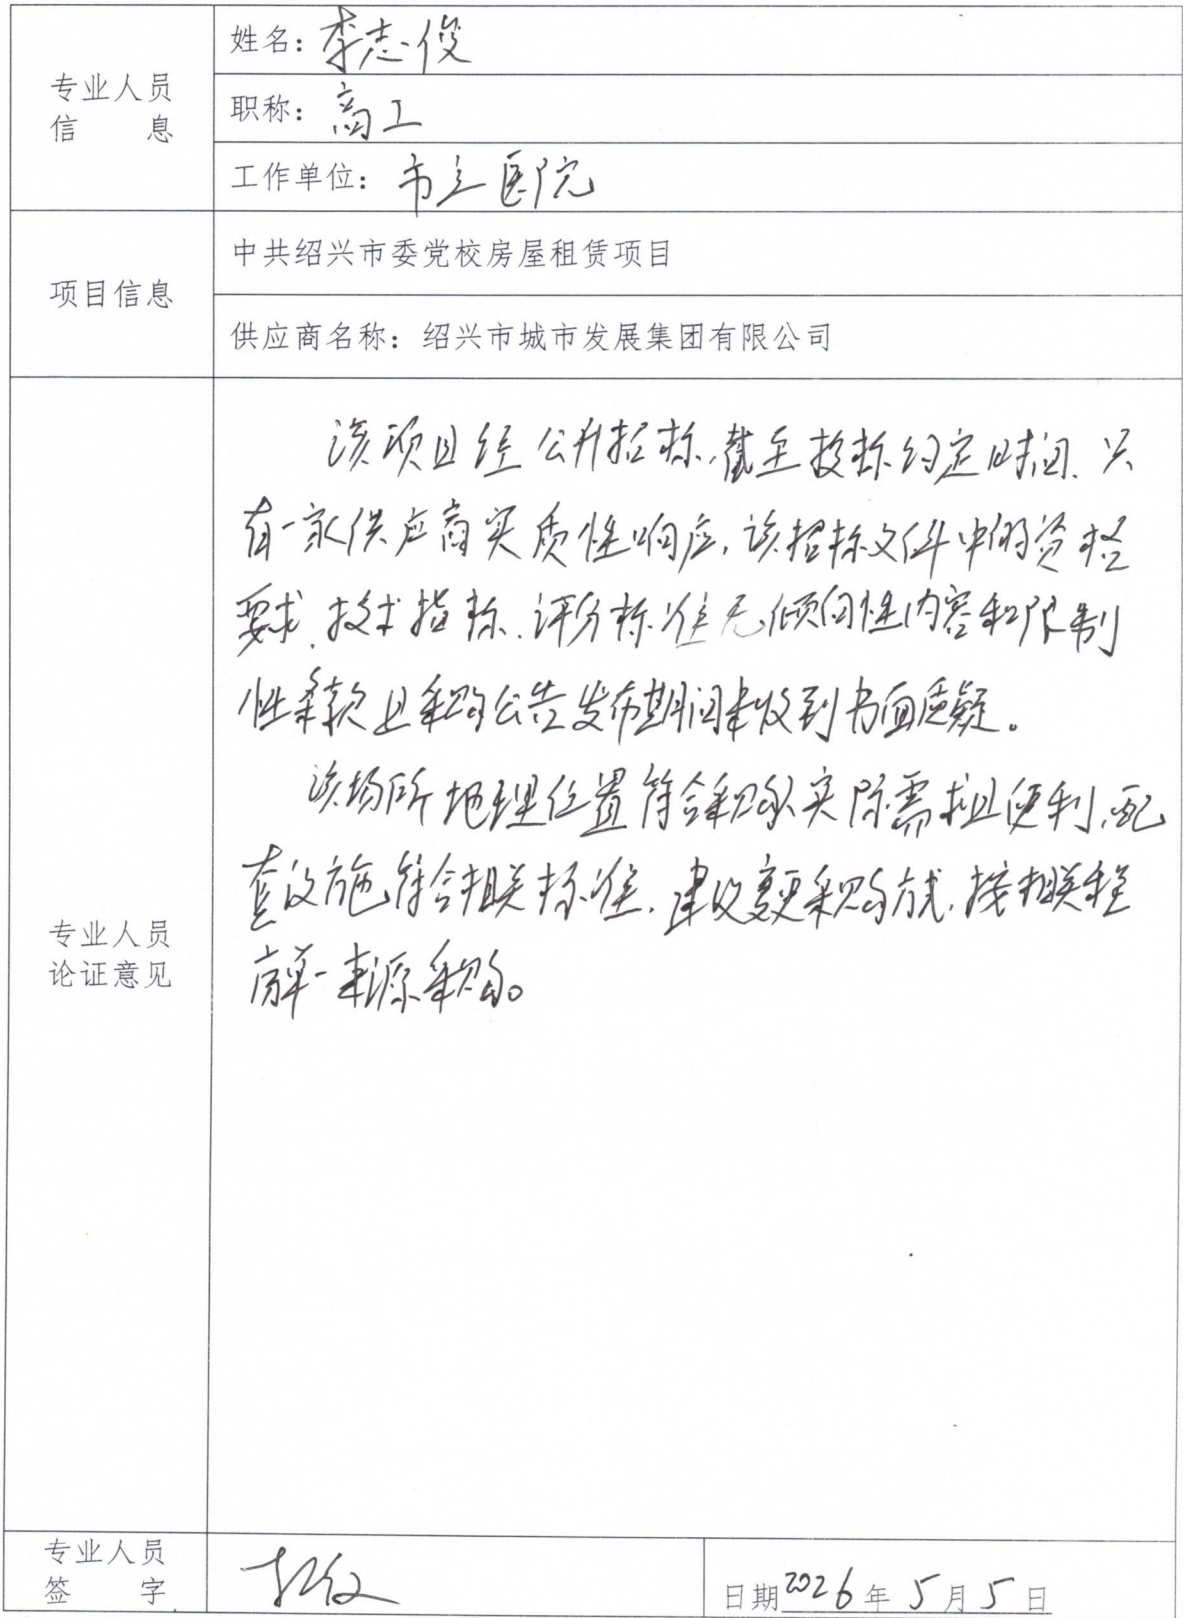 专业人员
信 息
姓名：李志俊
职称：高工
工作单位：市立医院
项目信息
中共绍兴市委党校房屋租赁项目
供应商名称：绍兴市城市发展集团有限公司
专业人员
论证意见
该项目经公开招标，截至投标约定时间、只
有一家供应商实质性响应，该招标文件中的资格
要求、技术指标、评分标准无倾向性内容和限制
性条款且采购公告发布期间未收到书面质疑。
该场所地理位置符合采购实际需求且便利，配
套设施符合相关标准，建议变更采购方式，按相关程
序单一来源采购。
专业人员
签 字
日期2026年5月5日